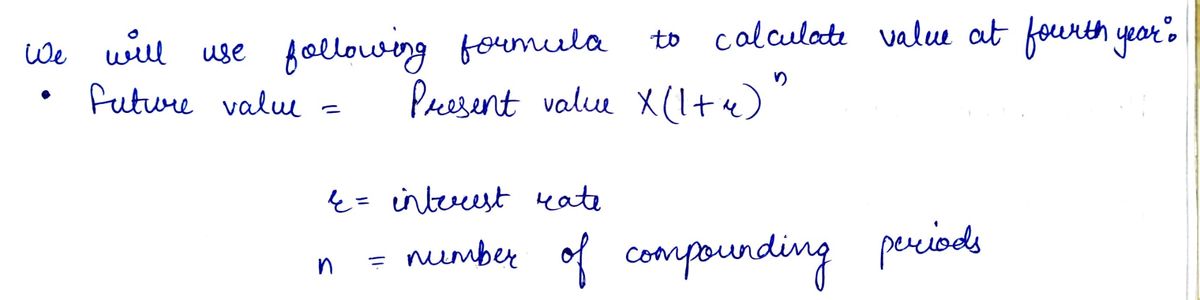 We will use following formula to calculate value at fourth year:
• Future value = Present value X(1+r)ⁿ
r = interest rate
n = number of compounding periods